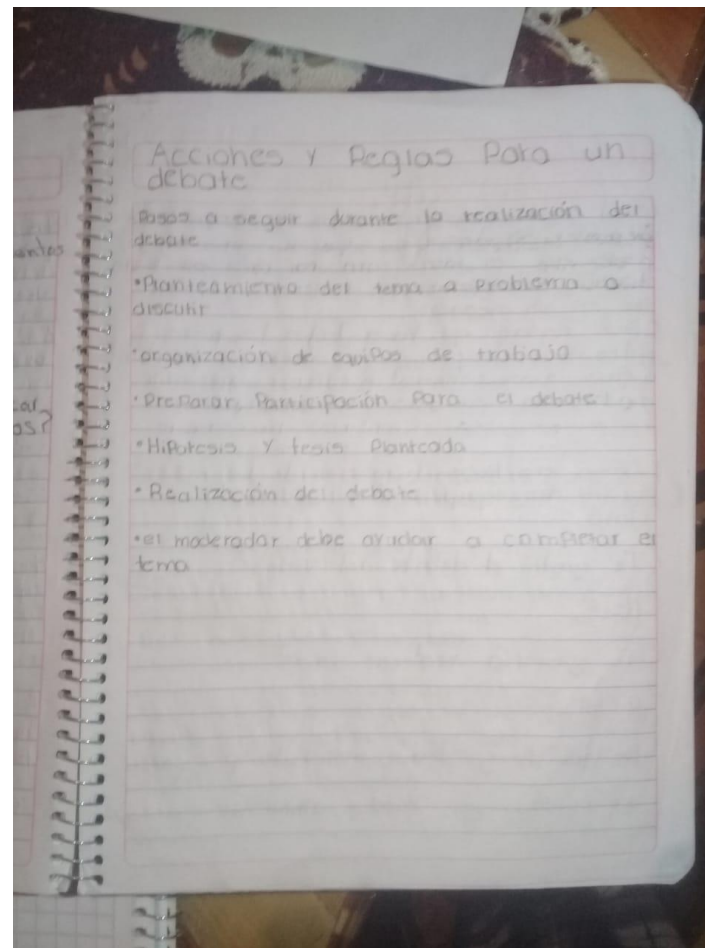 Acciones y Reglas Para un
debate
Pasos a seguir durante la realización del
debate
•Planteamiento del tema a problema a
discutir
•organización de equipos de trabajo
•Preparar Participación Para el debate
•Hipotesis y tesis Planteada
•Realización del debate
•el moderador debe ayudar a completar el
tema